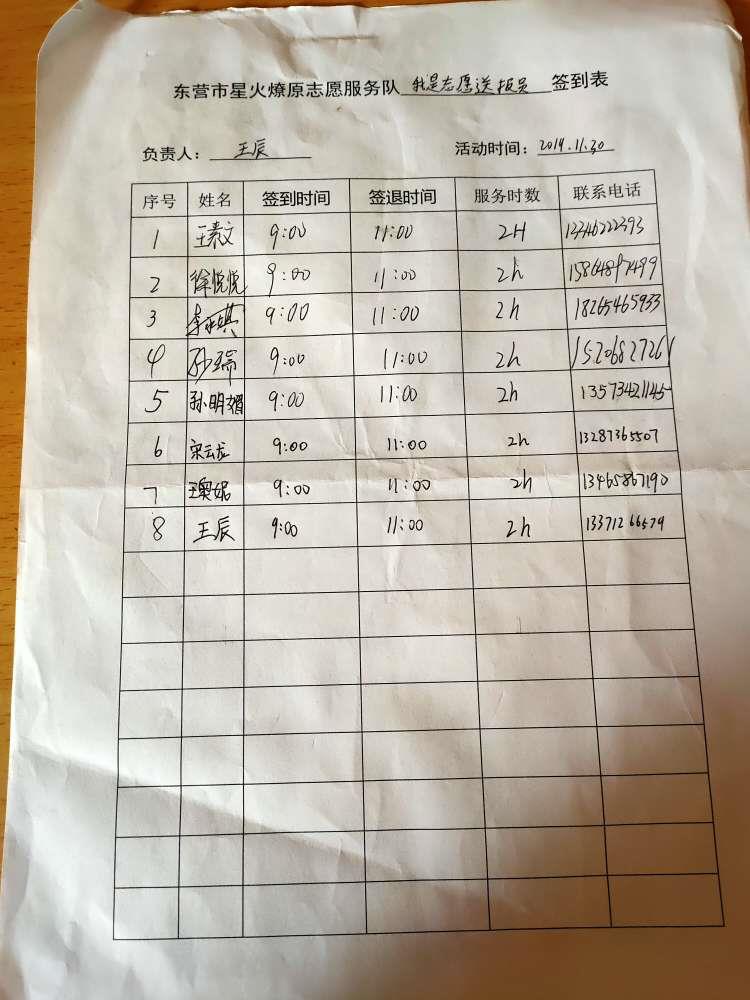 东营市星火燎原志愿服务队 我是志愿送报员 签到表
负责人： 王辰 活动时间：2019.11.30
序号 姓名 签到时间 签退时间 服务时数 联系电话
1 9:00 11:00 2H 13346222393
2 徐悦悦 9:00 11:00 2h
3 9:00 11:00 2h 18265465933
4 孙瑞 9:00 11:00 2h 15206827261
5 孙明 9:00 11:00 2h 13573421145
6 宋云龙 9:00 11:00 2h 13287365507
7 9:00 11:00 2h 13465867190
8 王辰 9:00 11:00 2h 13371266579